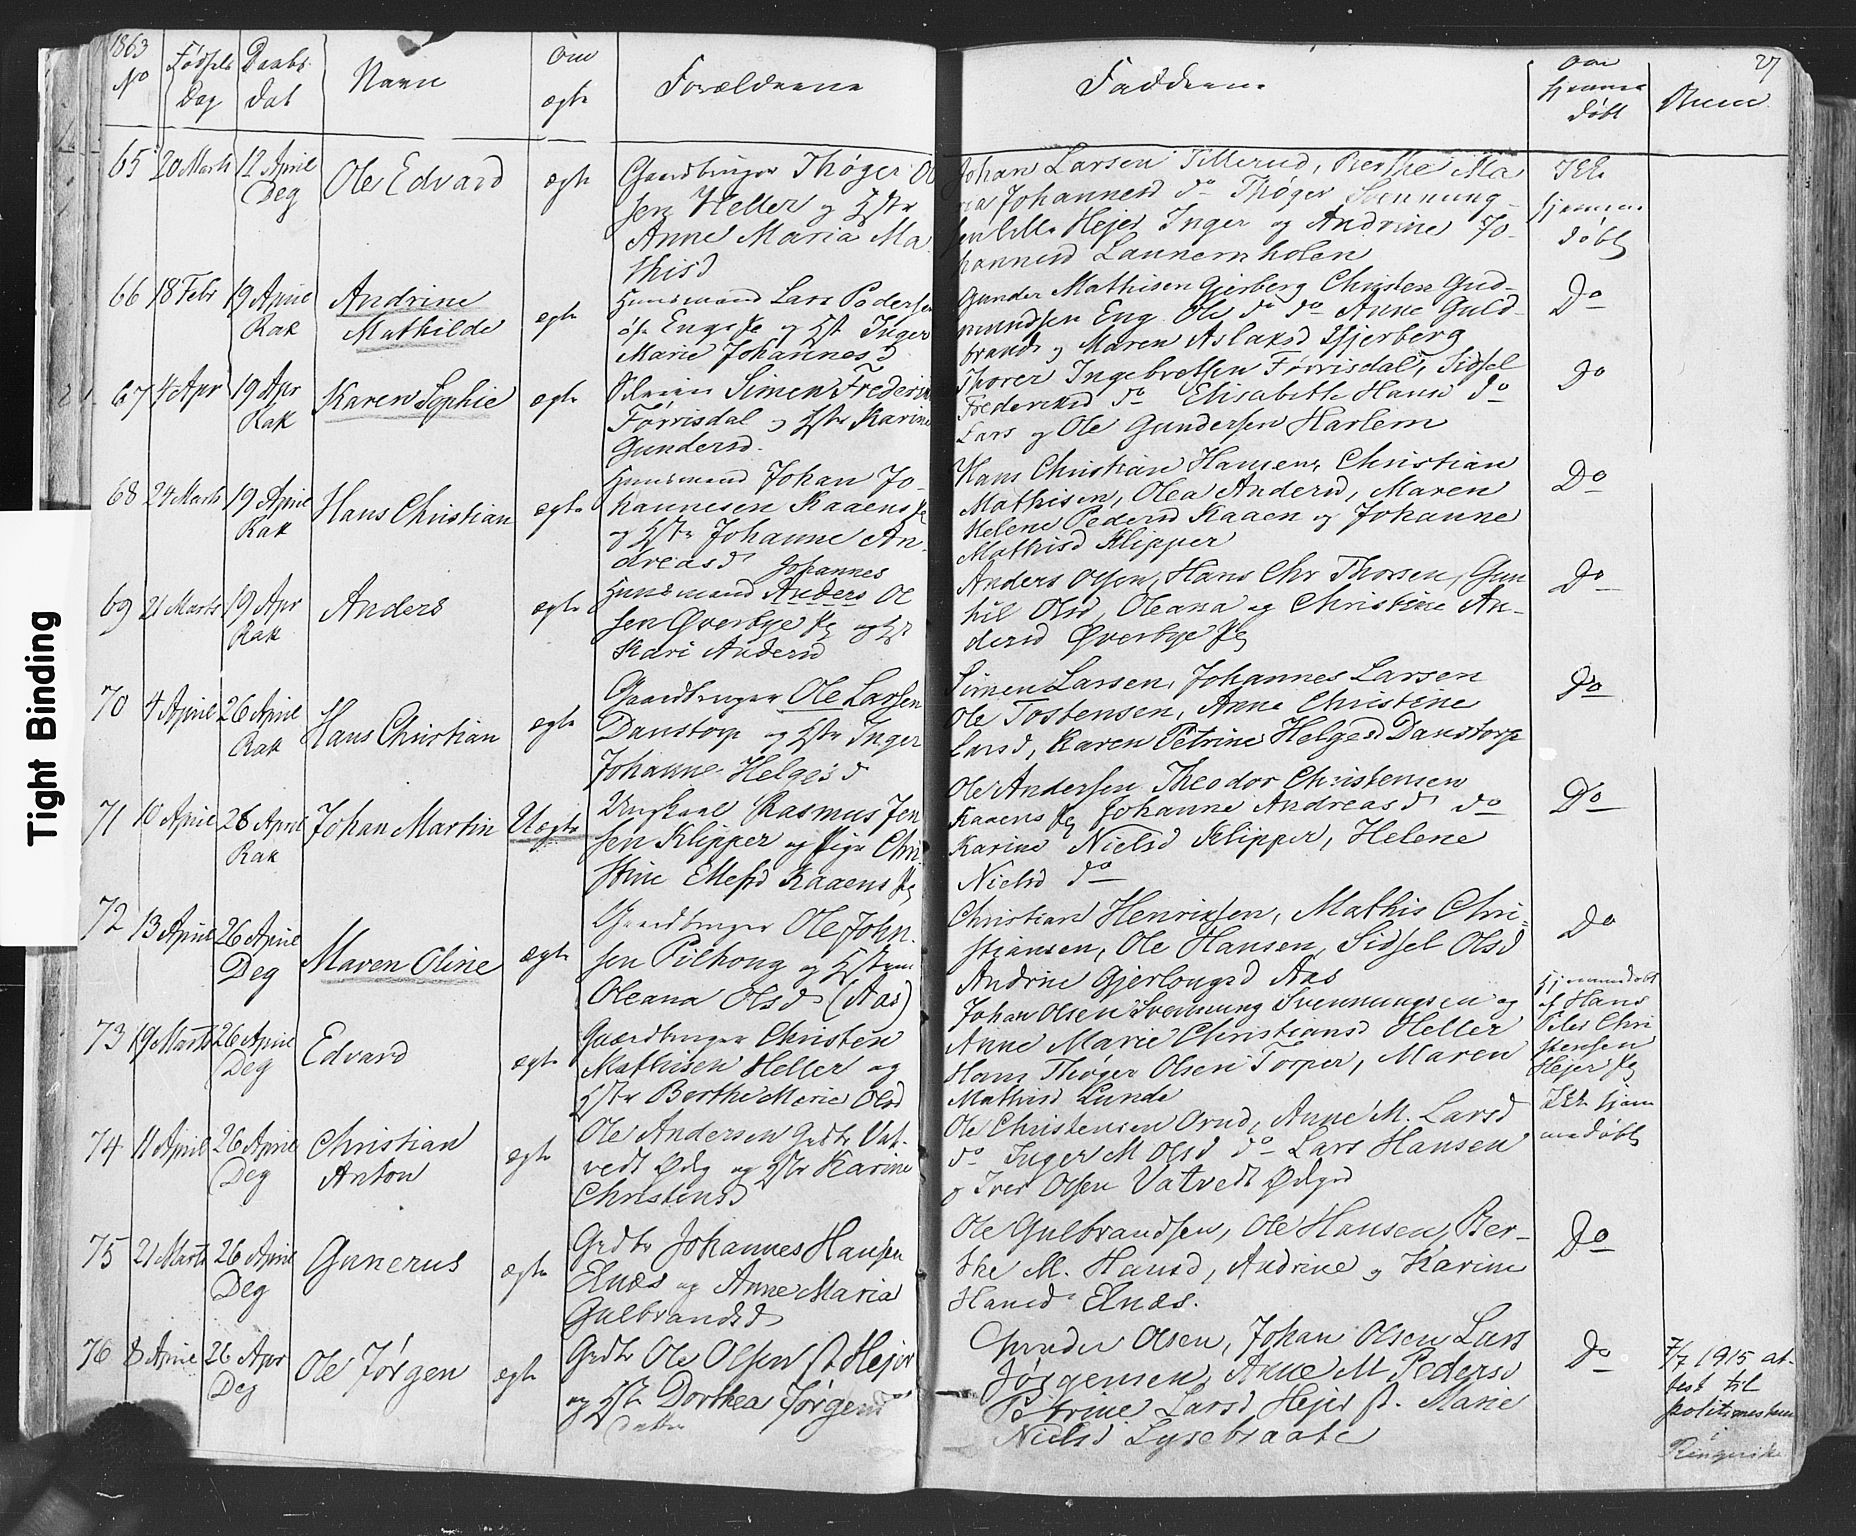 1863
No
Fødsels Dag
Daabs dat
Navn
Om ægte
Forældrene
Fadderne
om hjemme døbt
Anm
27
Tight Binding
65 20 Marts 12 April Deg Ole Edvard ægte
Gaardbruger Thøger Ol
sen Heller og Hstr
Anne Maria Ma
thisd
Johan Larsen Tillerud, Berthe Ma
ria Johannesd do Thøger Svennung-
sen Hejer Inger og Andrine Jo-
hannesd
Ikke
hjemme
døbt
66 18 Febr 19 April Rak Andrine Mathilde ægte
Huusmand Lars Pedersen
Eng og Hstr Inger
Marie Johannesd
Gunder Mathisen Gjerberg Christen Gud-
mundsen Eng Ole do do Anne Guld-
brands og Maren Aslaksd Gjerberg
Do
67 4 Apr 19 Apr Rak Karen Sophie ægte
Simen Frederik
Førrisdal og Hstr Karine
Gundersd.
Thorer Ingebretsen Førrisdal, Sidsel
Frederiksd do Elisabeth Hansd do
Lars og Ole Gundersen Harlem
Do
68 24 Marts 19 April Rak Hans Christian ægte
Huusmand Johan Jo-
hannesen Kaaens
og Hstr Johanne An-
dreasd
Hans Christian Hansen, Christian
Mathisen, Olea Andersd, Maren
Helene Pedersd Kaaen og Johanne
Mathisd Klipper
Do
69 21 Marts 19 Apr Rak Anders ægte
Johannes
Huusmand Anders Ol
sen Øverbye og Hstr
Kari Andersd
Anders Olsen, Hans Chr Thorsen, Gun
hil Olsd, Oleana og Christine An-
dersd Øverbye
Do
70 4 April 26 April Rak Hans Christian ægte
Gaardbruger Ole Larsen
Danstorp og Hstr Inger
Johanne Helgesd
Simen Larsen, Johannes Larsen
Ole Tostensen, Anne Christine
Larsd, Karen Petrine Helgesd Danstorp
Do
71 10 April 26 April Rak Johan Martin Uægte
Ungkarl Rasmus Jen
sen Klipper og Pige Chri
stine Ellefsd Kaaens
Ole Andersen Theodor Christensen
Kaaens Johanne Andreasd do
Karine Nielsd Klipper, Helene
Nielsd do
Do
72 13 April 26 April Deg Maren Oline ægte
Gaardbruger Ole John
sen Pilhoug og Hstru
Oleana Olsd (Aas)
Christian Henriksen, Mathis Chri-
stiansen, Ole Hansen, Sidsel Olsd
Andrine Gjerlougsd Aas
Do
73 19 Marts 26 April Deg Edvard ægte
Gaardbruger Christen
Mathisen Heller og
Hstr Berthe Marie Olsd
Johan Olsen Svensrung Svennungsen og
Anne Marie Christiansd Heller
Hans Thøger Olsen Torper, Maren
Mathisd Lunde
hjemmedøbt
af Hans
Peter Chri
stensen
Hejer
74 11 April 26 April Deg Christian Anton ægte
Ole Andersen Grdbr Vat-
vedt Ødeg og Hstr Karine
Christensd
Ole Christensen Orud, Anne M. Larsd
do Inger M Olsd do Lars Hansen
og Iver Olsen Vatvedt Ødegd
Ikke hjem
medøbt
75 21 Marts 26 April Deg Gunerus ægte
Grdbr Johannes Hansen
Elnæs og Anne Maria
Gulbrandsd
Ole Gulbrandsen, Ole Hansen, Ber-
the M. Hansd, Andrine og Karine
Hansd Elnæs.
Do
76 8 April 26 Apr Deg Ole Jørgen ægte
Grdbr Ole Olsen st Hejer
og Hstr Dorthea Jørgensd
datter
Gunder Olsen, Johan Olsen Lars
Jørgensen, Anne M Pedersd
Petrine Larsd Hejer st. Marie
Nielsd Lysebraate
Do
7/7 1915 at-
test til
politimesteren
i
Ringerike